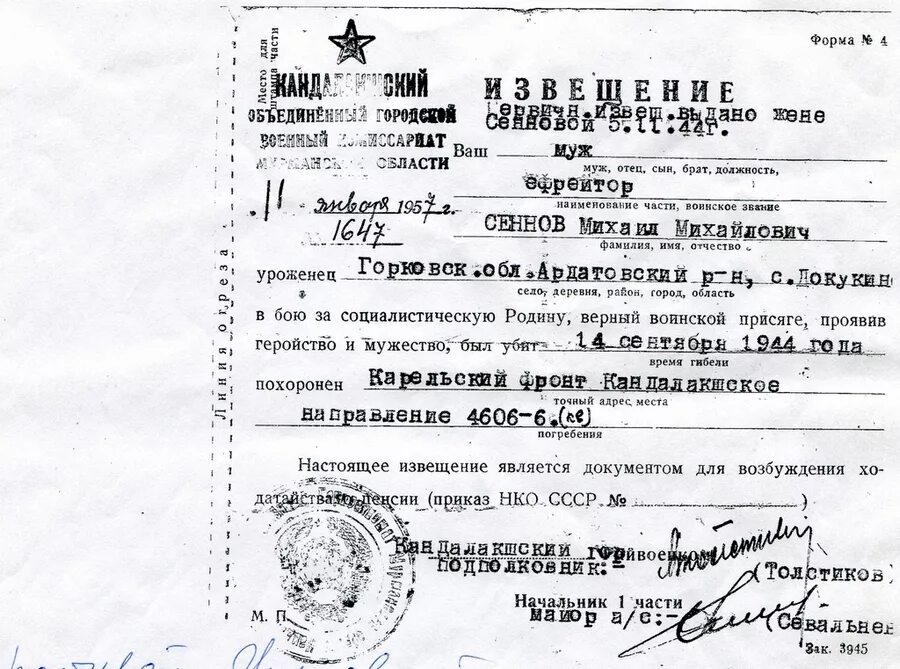 Форма № 4
Место для
штампа части
КАНДАЛАКШСКИЙ
ОБЪЕДИНЁННЫЙ ГОРОДСКОЙ
ВОЕННЫЙ КОМИССАРИАТ
МУРМАНСКОЙ ОБЛАСТИ
11 января 1957 г.
1647
Линия отреза
ИЗВЕЩЕНИЕ
Первичн.извещ.выдано жене
Сенновой 5.11.44г.
Ваш муж
муж, отец, сын, брат, должность,
ефрейтор
наименование части, воинское звание
СЕННОВ Михаил Михайлович
фамилия, имя, отчество
уроженец Горковск.обл.Ардатовский р-н, с.Докукин
село, деревня, район, город, область
в бою за социалистическую Родину, верный воинской присяге, проявив
геройство и мужество, был убит 14 сентября 1944 года
время гибели
похоронен Карельский фронт Кандалакшское
точный адрес места
направление 4606-6.
погребения
Настоящее извещение является документом для возбуждения хо-
датайства о пенсии (приказ НКО СССР № )
Кандалакшский горвоенком
подполковник:-
(Толстиков)
Начальник 1 части
майор а/с:-
(Севальнев
М. П.
Зак. 3945